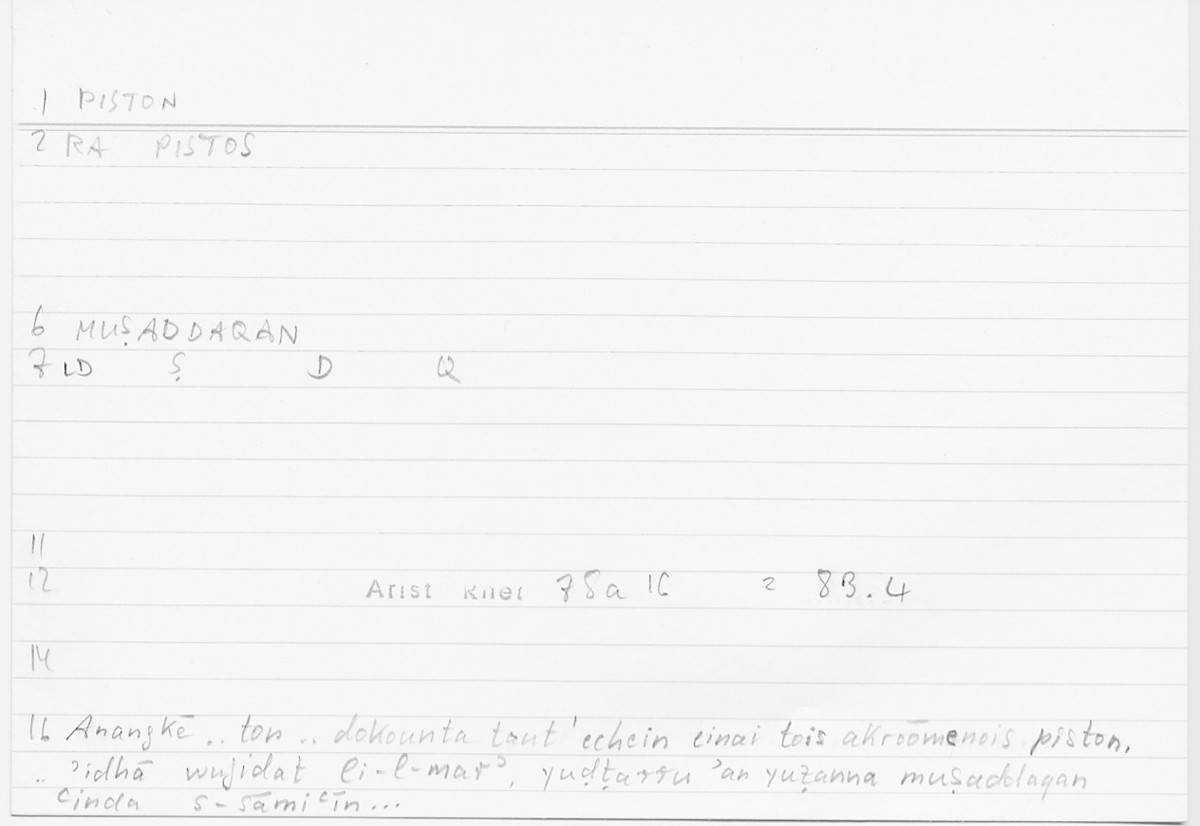 1 PISTON
2 RA PISTOS
6 MUṢADDAQAN
7 LD Ṣ D Q
11
12 Arist Rhet 78a 16 = 83.4
14
16 Anangkē .. ton .. dokounta taut'echein einai tois akroōmenois piston.
.. ʾidhā wujidat li-l-marʾ, yuḍṭarru ʾan yuẓanna muṣaddaqan
ʿinda s-sāmiʿīn...